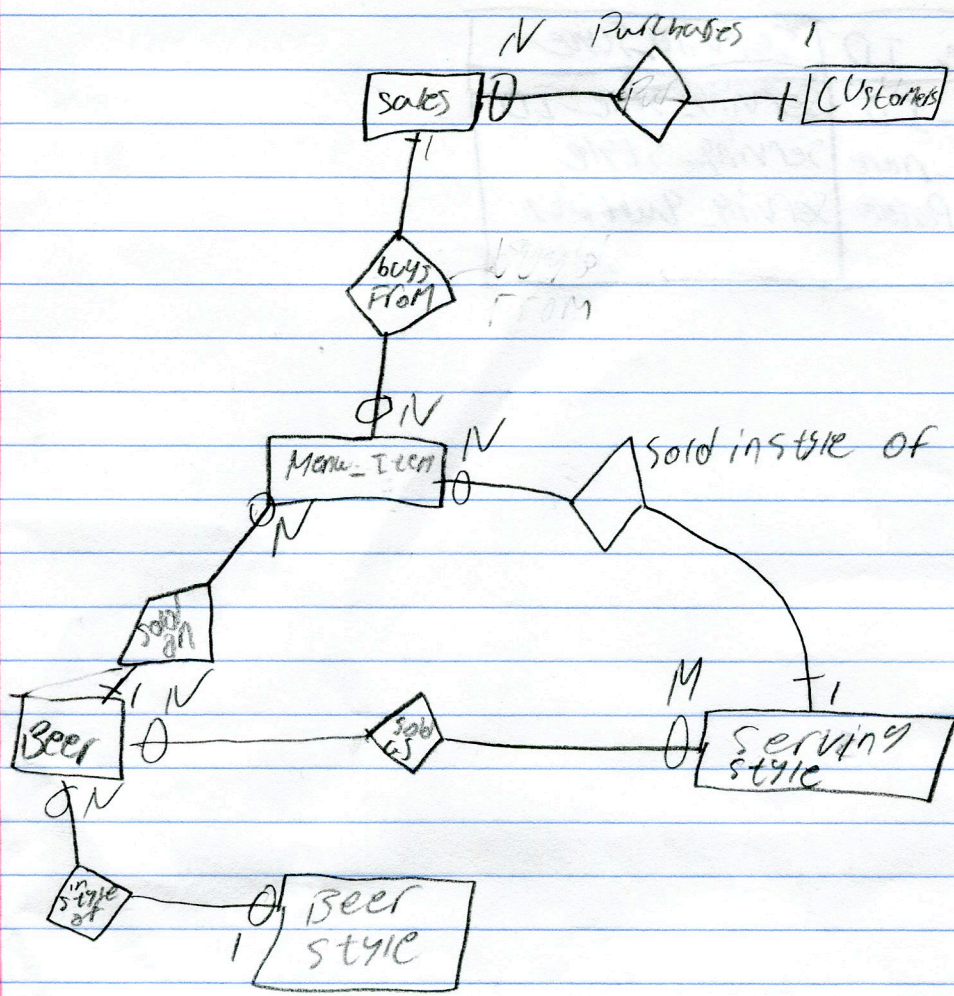 N Purchases 1
sales
Customers
1
buys
From
N
Menu_Item
N
sold instyle of
N
1 N
M
1
Beer
sold
as
Serving
style
N
in
style
of
Beer
style
1